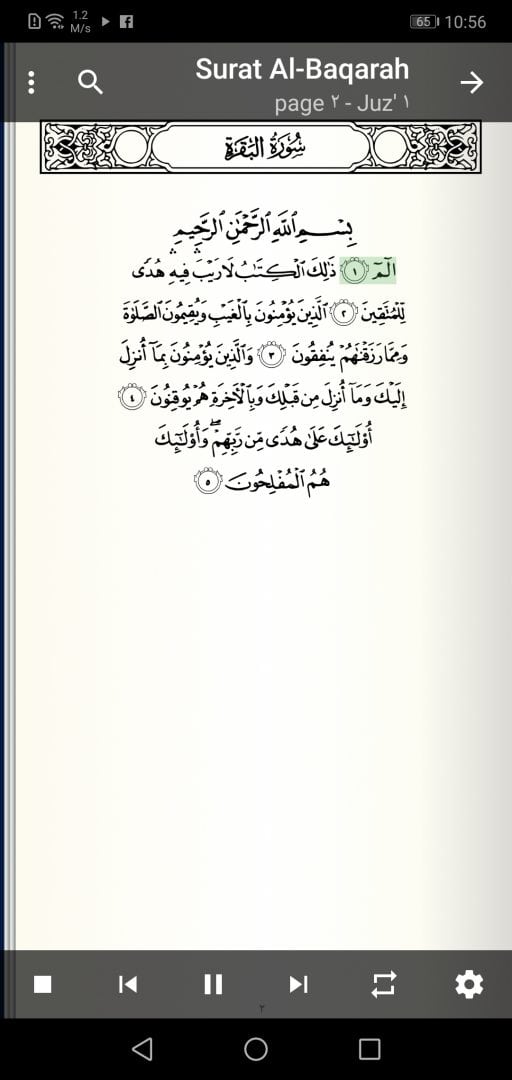 1.2
M/s
65
10:56
Surat Al-Baqarah
page ٢ - Juz' ١
سُورَةُ البَقَرَةِ
بِسۡمِ ٱللَّهِ ٱلرَّحۡمَٰنِ ٱلرَّحِيمِ
الٓمٓ ١ ذَٰلِكَ ٱلۡكِتَٰبُ لَا رَيۡبَۛ فِيهِۛ هُدٗى
لِّلۡمُتَّقِينَ ٢ ٱلَّذِينَ يُؤۡمِنُونَ بِٱلۡغَيۡبِ وَيُقِيمُونَ ٱلصَّلَوٰةَ
وَمِمَّا رَزَقۡنَٰهُمۡ يُنفِقُونَ ٣ وَٱلَّذِينَ يُؤۡمِنُونَ بِمَآ أُنزِلَ
إِلَيۡكَ وَمَآ أُنزِلَ مِن قَبۡلِكَ وَبِٱلۡأٓخِرَةِ هُمۡ يُوقِنُونَ ٤
أُوْلَٰٓئِكَ عَلَىٰ هُدٗى مِّن رَّبِّهِمۡۖ وَأُوْلَٰٓئِكَ
هُمُ ٱلۡمُفۡلِحُونَ ٥
٢